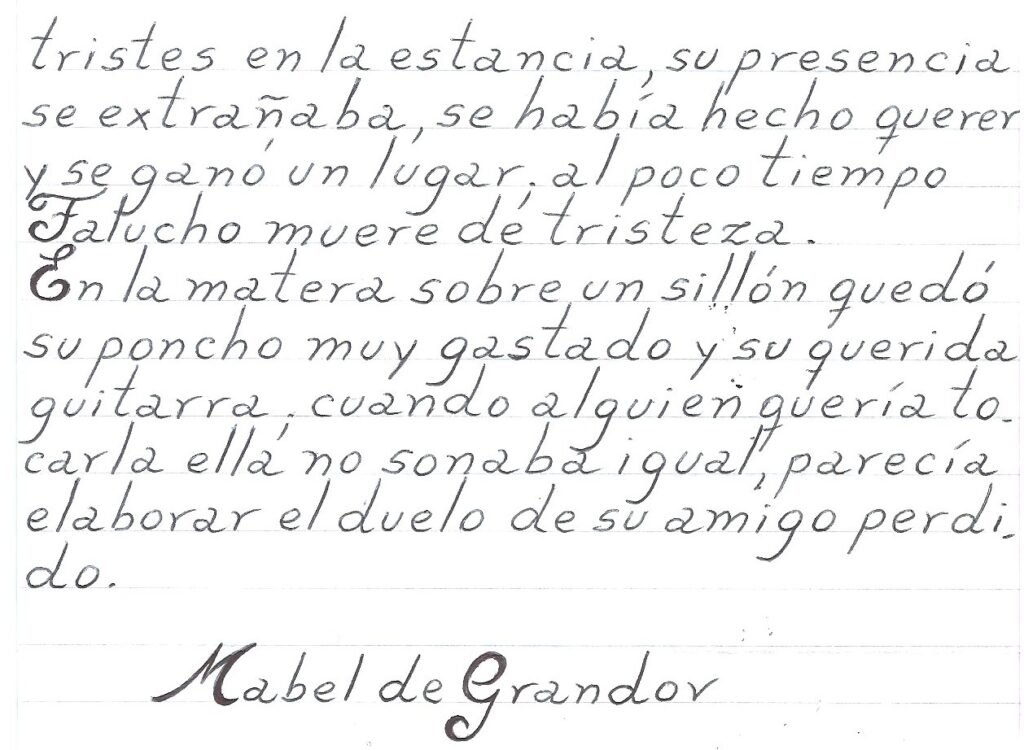 tristes en la estancia, su presencia
se extrañaba, se había hecho querer
y se ganó un lugar, al poco tiempo
Falucho muere de tristeza.
En la matera sobre un sillón quedó
su poncho muy gastado y su querida
guitarra, cuando alguien quería to-
carla ella no sonaba igual, parecía
elaborar el duelo de su amigo perdi-
do.
Mabel de Grandov